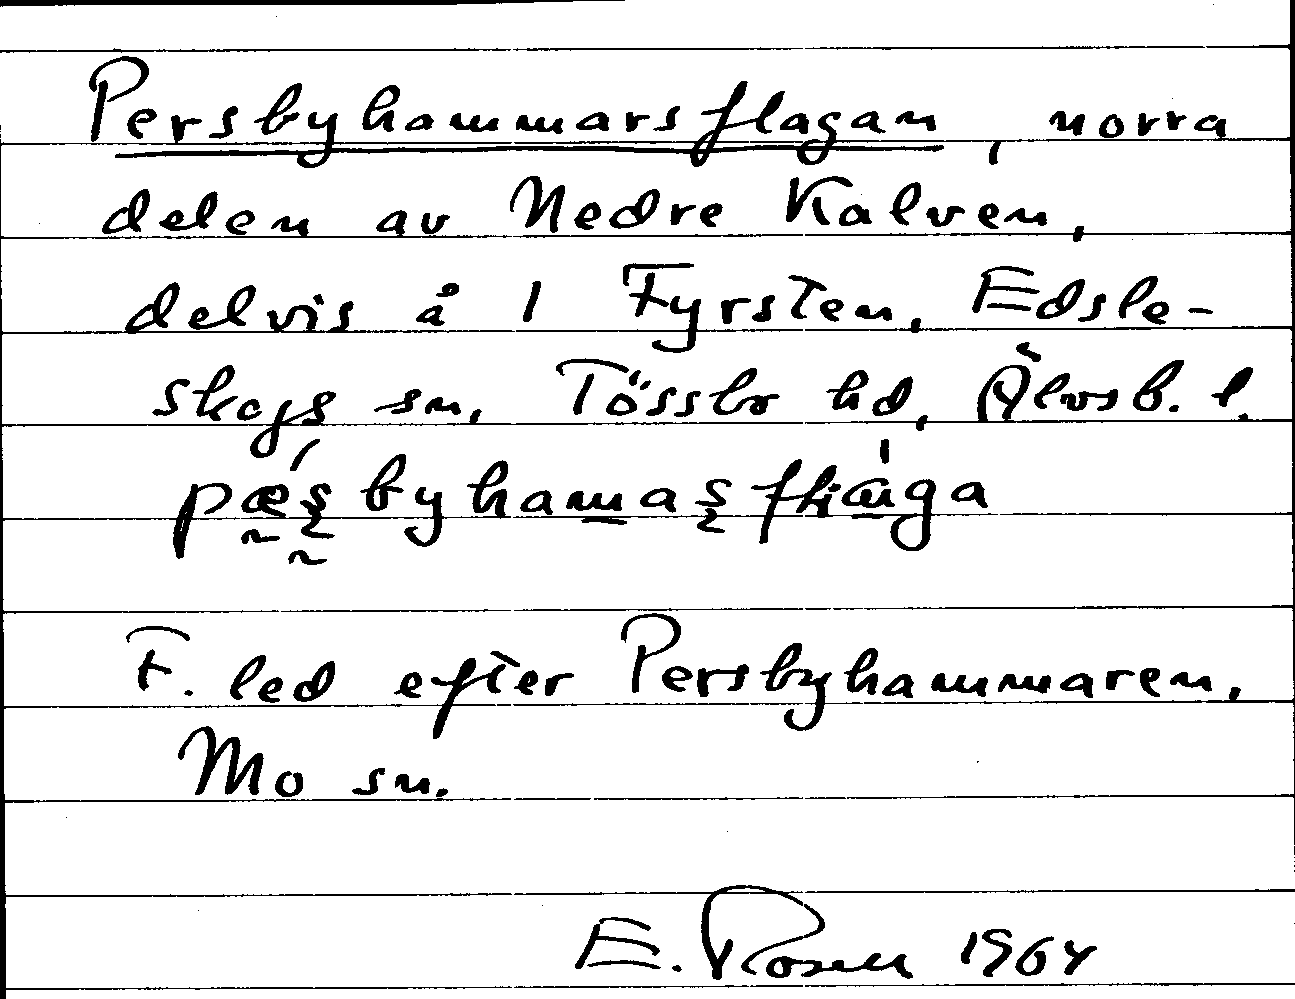 Persbyhammarsflagan, norra
delen av Nedre Kalven,
delvis å 1 Fyrsten, Edsle-
skogs sn, Tössbo hd, Älvsb. l.
F. led efter Persbyhammaren,
Mo sn.
E. Rosell 1964